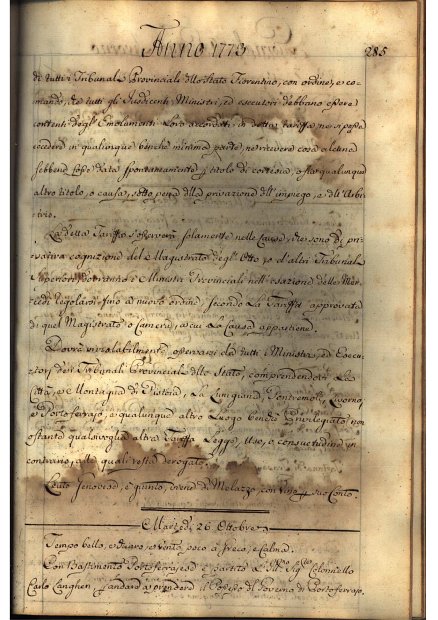 Anno 1773
285
di tutti i Tribunali Provinciali dello Stato Fiorentino, con ordine, e co-
mando, che tutti gli Iusdicenti Ministri, ed esecutori debbano essere
contenti degl'Emolumenti Loro accordati in detta tariffa ne si possa
eccedere in qualunque benche minima parte, ne ricevere cosa alcuna
sebbene fosse data spontaneamente a titolo di cortesia, o per qualunque
altro titolo, o causa, sotto pena della privazione dell'impiego, e dell'Arbi-
trio.
La detta Tariffa s'osserverà solamente nelle Cause, che sono di pri-
vativa cognizione del Magistrato degl'Otto, se d'altri Tribunali
Superiori, dovranno i Ministri Provinciali nell'esazione delle Mer-
cedi regolarsi fino a nuovo ordine, secondo La Tariffa approvata
di quel Magistrato o Camera, a cui La Causa appartiene.
Dovrà inviolabilmente osservarsi da tutti i Ministri, ed Esecu-
tori dei Tribunali Provinciali dello Stato, comprendendovi La
Città, e Montagna di Pistoia, La Lunigiana, Pontremoli, Livorno,
e Portoferrajo, e qualunque altro Luogo benche Privilegiato non
ostante qualsivoglia altra Tariffa, Legge, Uso, o consuetudine in
contrario, alle quali resta derogato.
Leuto Jenovese, è giunto, viene di Melazzo, con Vino suo Conto.
Martedì 26 Ottobre
Tempo bello, e chiaro, e vento poco a Greco, e Calma.
Con bastimento Portoferrajese è partito Colonnello
Carlo Langhen andarà a prendere il Possesso di Governo di Portoferrajo.